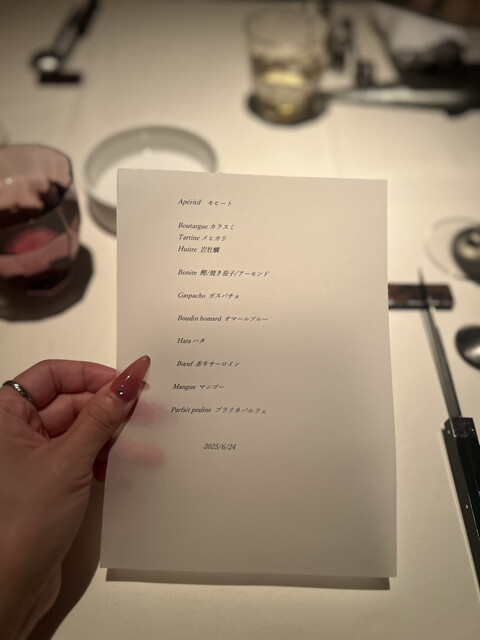 Apéritif モヒート
Boutargue カラスミ
Tartine メヒカリ
Huître 岩牡蠣
Bonite 鰹/焼き茄子/アーモンド
Gaspacho ガスパチョ
Boudin homard オマールブルー
Hata ハタ
Bœuf 赤牛サーロイン
Mangue マンゴー
Parfait praline プラリネパルフェ
2025/6/24